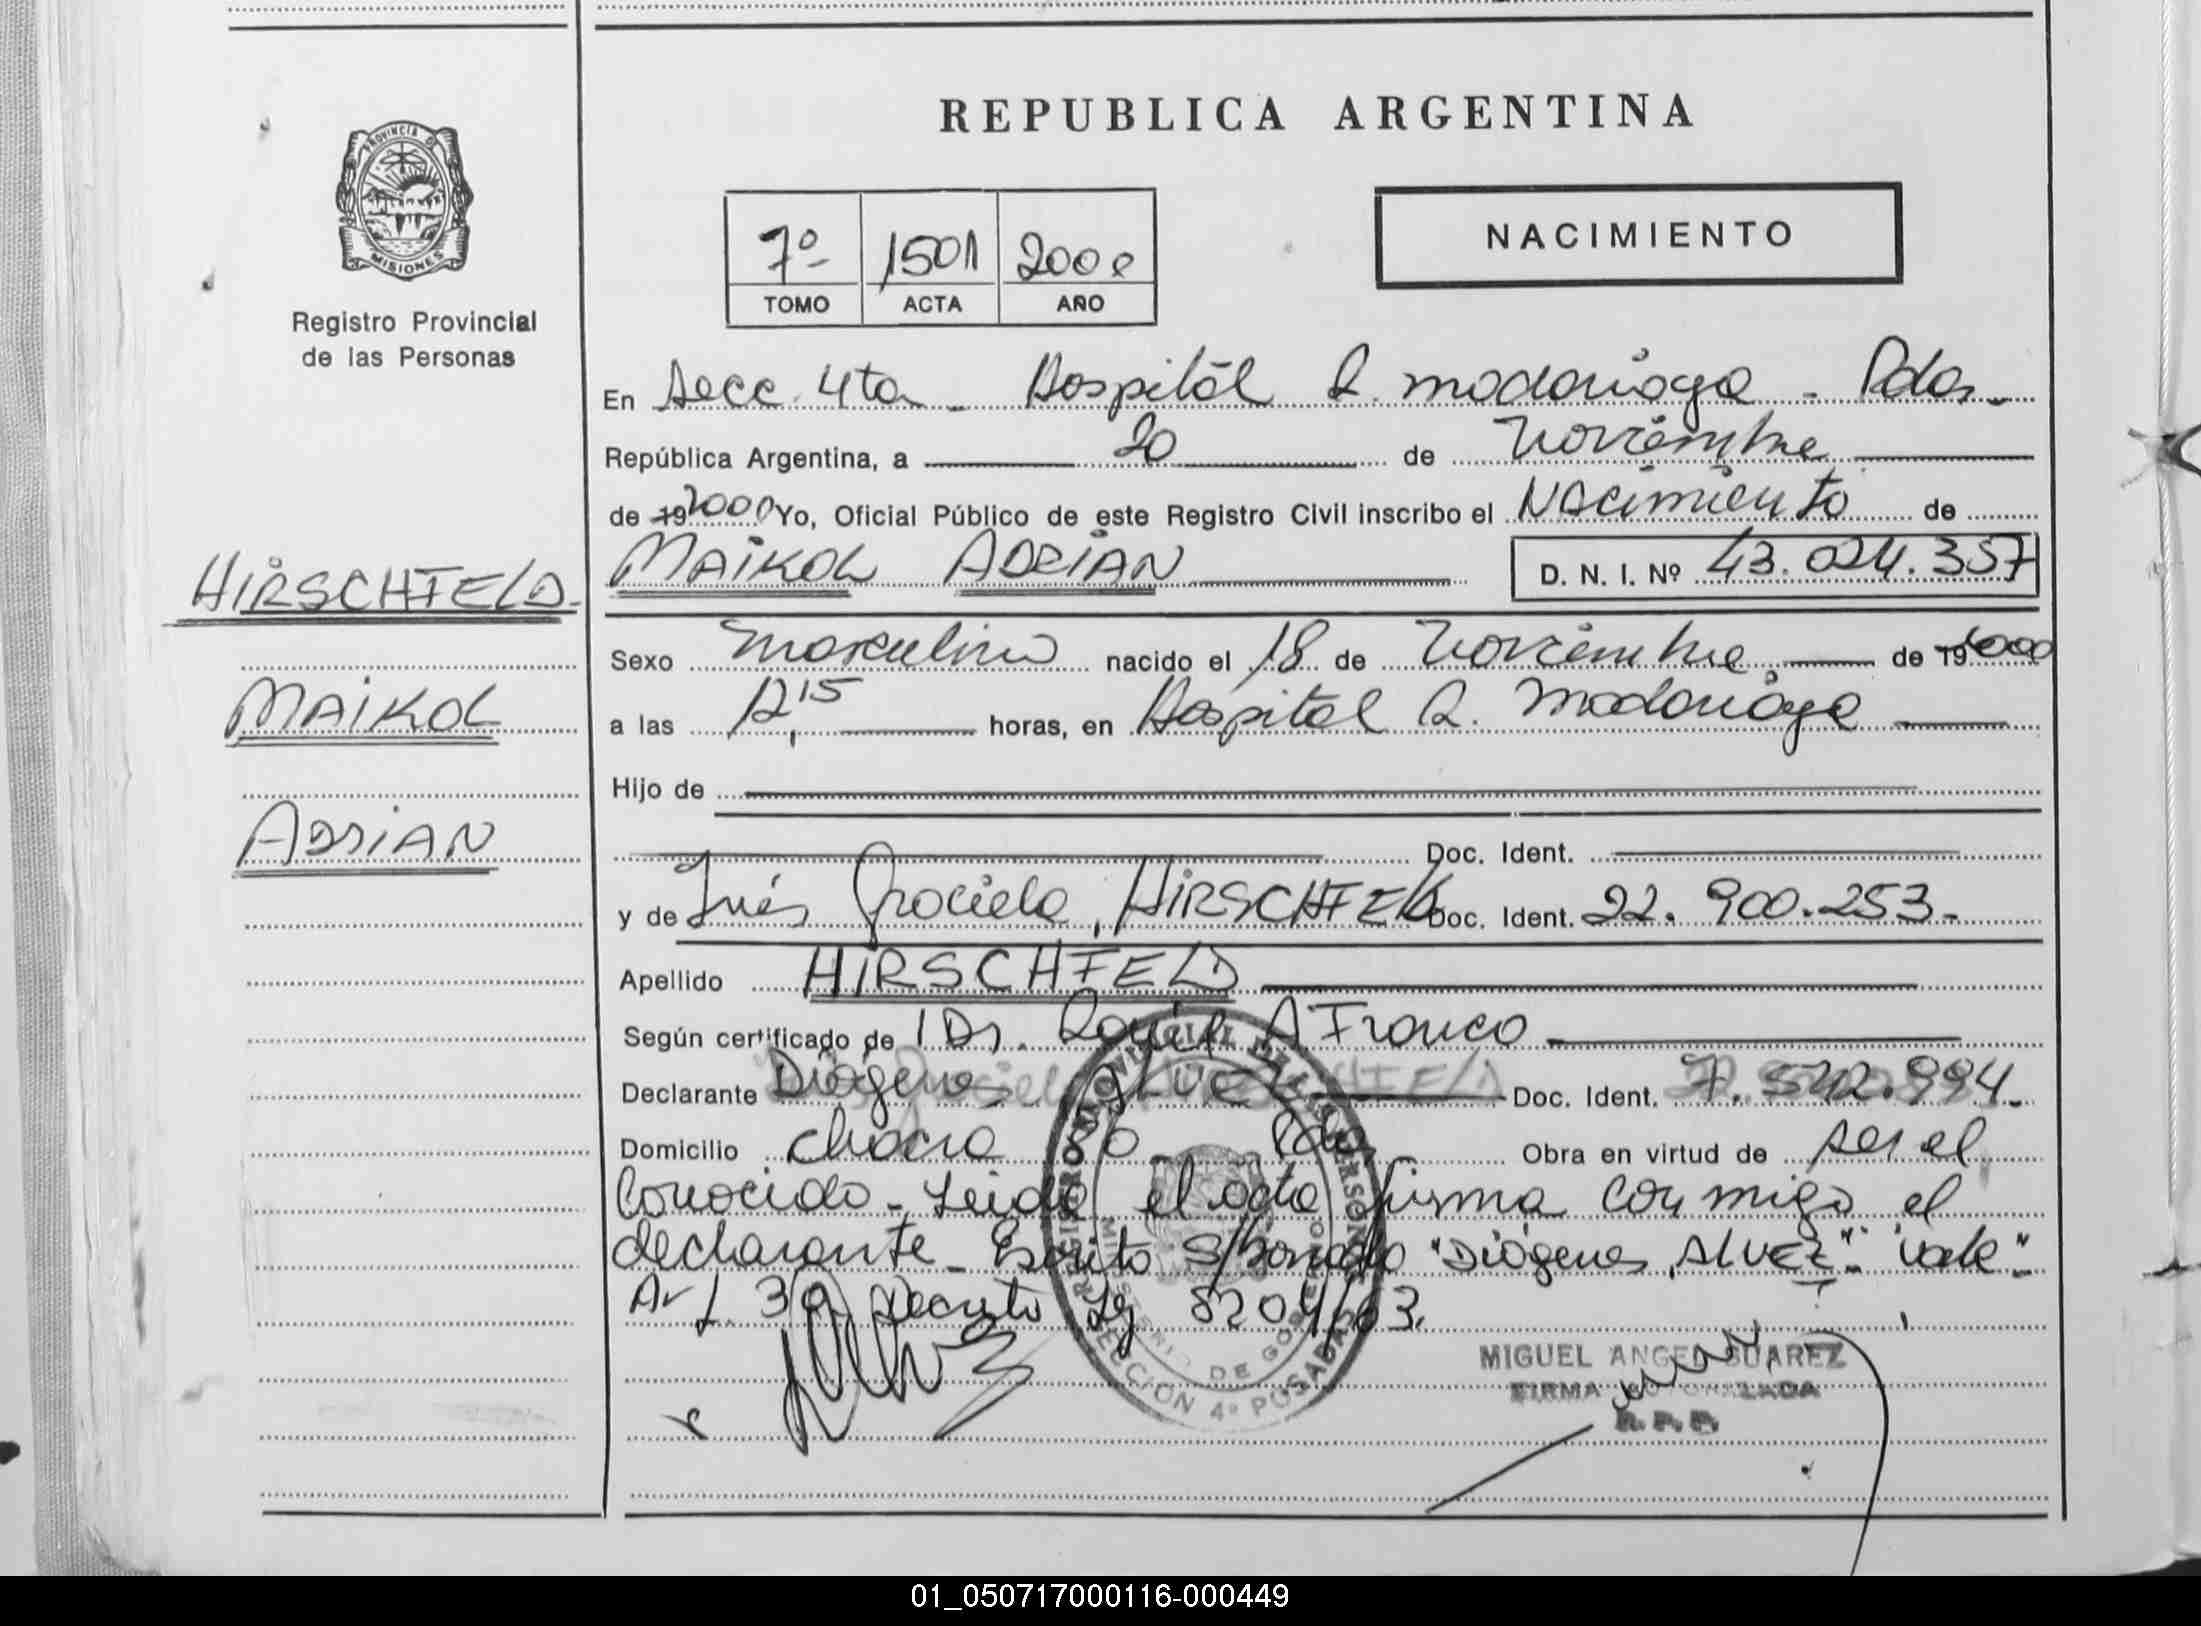 REPUBLICA ARGENTINA
PROVINCIA DE
MISIONES
Registro Provincial
de las Personas
7º 1501 2000
TOMO ACTA AÑO
NACIMIENTO
En Secc. 4ta - Hospital R. Madariaga - Pdas.
República Argentina, a 20 de Noviembre
de 19 2000 Yo, Oficial Público de este Registro Civil inscribo el Nacimiento de
MAIKOL ADRIAN D. N. I. Nº 43.024.357
HIRSCHFELD
MAIKOL
ADRIAN
Sexo Masculino nacido el 18 de Noviembre de 19 2000
a las 12,15 horas, en Hospital R. Madariaga
Hijo de
Doc. Ident.
y de Inés Graciela, HIRSCHFELD Doc. Ident. 22.900.253.-
Apellido HIRSCHFELD
Según certificado de 1 Dr. A Franco
Declarante Diógenes ALVEZ Doc. Ident. 7.542.994.
Domicilio Chacra 80 - Pdas Obra en virtud de ser el
conocido - Leída el acta firma conmigo el
declarante - Escrito s/borrado "Diógenes, ALVEZ" - "vale" -
Art. 30 Decreto Ley 8204/63.
REGISTRO PROVINCIAL DE LAS PERSONAS
MINISTERIO DE GOBIERNO
SECCION 4º POSADAS
MIGUEL ANGEL SUAREZ
FIRMA AUTORIZADA
R. P. P.
01_050717000116-000449